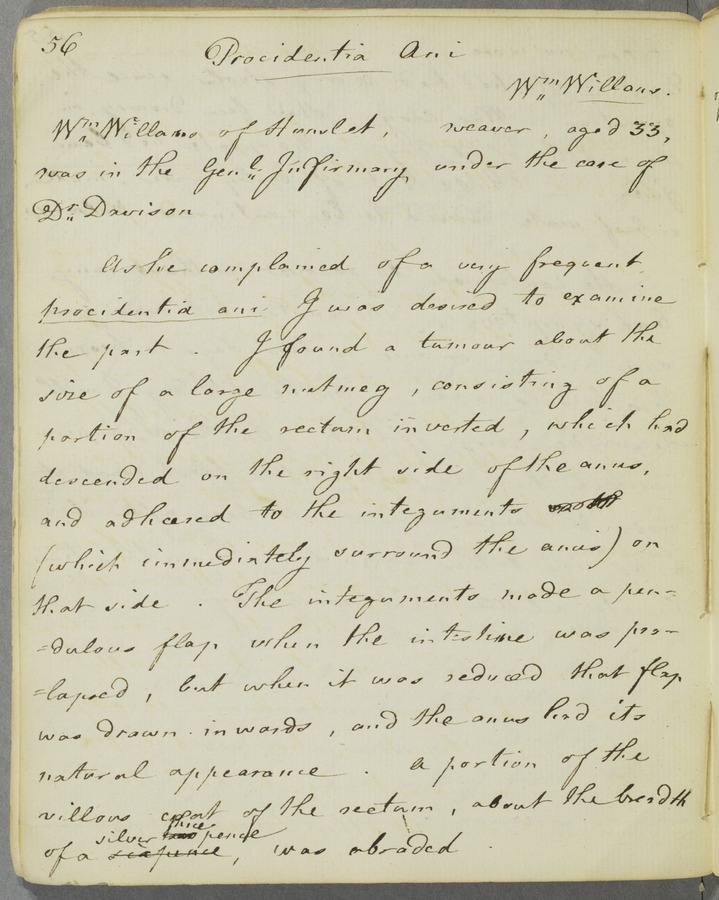 56
Procidentia Ani
Wm Willans.
Wm Willans of Hunslet, weaver, aged 33,
was in the Genl. Infirmary under the care of
Dr Davison
As he complained of a very frequent
procidentia ani I was desired to examine
the part. I found a tumour about the
size of a large nutmeg, consisting of a
portion of the rectum inverted, which had
descended on the right side of the anus,
and adhered to the integuments
(which immediately surround the anus) on
that side. The integuments made a pen-
=dulous flap when the intestine was pro-
=lapsed, but when it was reduced that flap
was drawn inwards, and the anus had its
natural appearance. A portion of the
villous coat of the rectum, about the breadth
silver three pence
of a sixpence, was abraded.